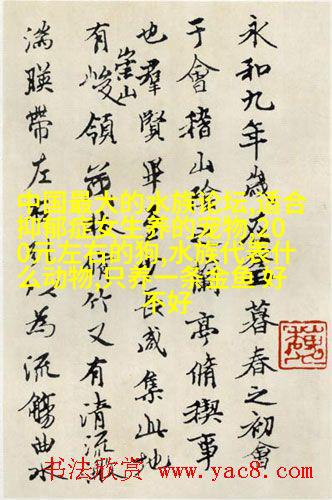 永和九年歲在暮春之初會
于會稽山陰之蘭亭脩稧事
也羣賢畢至少長咸集此地
有崇山峻領茂林脩竹又有清流激
湍暎帶左為流觴曲水
中国最大的水族论坛,适合
抑郁症女生养的宠物,20
0元左右的狗,水族代表什
么动物,只养一条金鱼 好
不好
书法欣赏 www.yac8.com